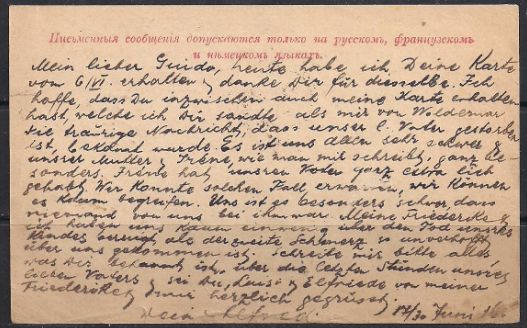 Письменныя сообщенія допускаются только на русскомъ, французскомъ
и нѣмецкомъ языкахъ.
Mein lieber Guido, heute habe ich Deine Karte
vom 6/VI. erhalten & danke Dir für dieselbe. Ich
hoffe, dass Du inzwischen auch meine Karte erhalten
hast, welche ich Dir sandte, als mir von Woldemar
die traurige Nachricht, dass unser l. Vater gestorben
ist, wurde. Es ist uns allen sehr schwer &
unsrer Mutter & Irène, wie man mir schreibt, ganz be-
sonders. Irène hat unseren Vater ganz extra lieb
gehabt. Wer konnte solchen Fall erwarten, wir können
es kaum begreifen. Uns ist es besonders schwer, dass
niemand von uns bei ihm war. Meine Friederike &
ich haben uns kaum ein wenig über den Tod unsres
Kindes beruhigt, als der zweite Schmerz so unverhofft
über uns gekommen ist. Schreibe mir bitte alles
was Dir bekannt ist, über die letzten Stunden unsres
lieben Vaters & sei Du, Luise & Elfriede von meiner
Friederike & mir herzlich gegrüsst
Dein Alfred. 17/30 Juni